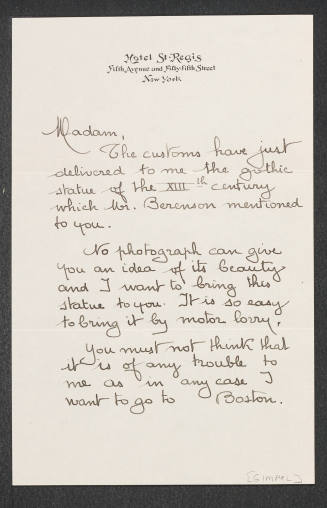 Hotel St-Regis
Fifth Avenue and Fifty-fifth Street
New York
Madam,
The customs have just
delivered to me the gothic
statue of the XIII th century
which Mr. Berenson mentioned
to you.
No photograph can give
you an idea of its beauty
and I want to bring this
statue to you. It is so easy
to bring it by motor lorry.
You must not think that
it is of any trouble to
me as in any case I
want to go to Boston.
[GIMPEL]